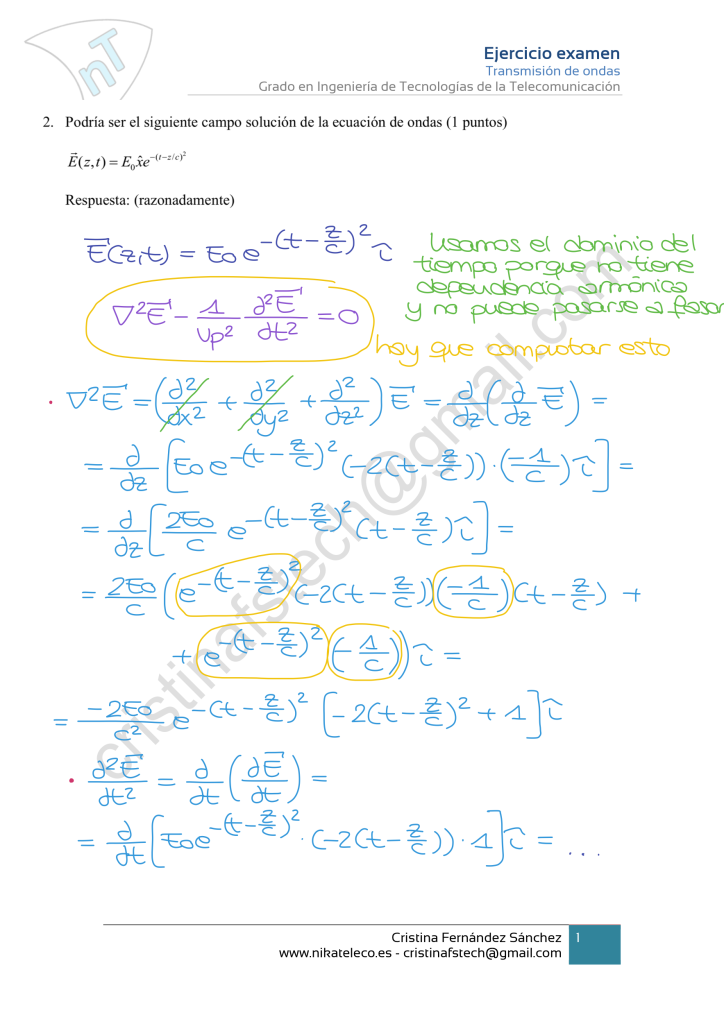 nT
Ejercicio examen
Transmisión de ondas
Grado en Ingeniería de Tecnologías de la Telecomunicación
2. Podría ser el siguiente campo solución de la ecuación de ondas (1 puntos)
$\vec{E}(z,t) = E_0\hat{x}e^{-(t-z/c)^2}$
Respuesta: (razonadamente)
$\vec{E}(z,t) = E_0 e^{-(t-\frac{z}{c})^2} \hat{\imath}$
Usamos el dominio del
tiempo porque no tiene
dependencia armónica
y no puede pasarse a fasor
$\nabla^2\vec{E} - \frac{1}{Vp^2} \frac{\partial^2\vec{E}}{\partial t^2} = 0$
hay que comprobar esto
· $\nabla^2\vec{E} = (\frac{\partial^2}{\partial x^2} + \frac{\partial^2}{\partial y^2} + \frac{\partial^2}{\partial z^2})\vec{E} = \frac{\partial}{\partial z}(\frac{\partial}{\partial z}\vec{E}) =$
$= \frac{\partial}{\partial z}[E_0 e^{-(t-\frac{z}{c})^2}(-2(t-\frac{z}{c}))\cdot(\frac{-1}{c})\hat{\imath}] =$
$= \frac{\partial}{\partial z}[\frac{2E_0}{c} e^{-(t-\frac{z}{c})^2}(t-\frac{z}{c})\hat{\imath}] =$
$= \frac{2E_0}{c}(e^{-(t-\frac{z}{c})^2}(-2(t-\frac{z}{c}))(\frac{-1}{c})(t-\frac{z}{c}) +$
$+ e^{-(t-\frac{z}{c})^2}(-\frac{1}{c}))\hat{\imath} =$
$= \frac{-2E_0}{c^2} e^{-(t-\frac{z}{c})^2}[-2(t-\frac{z}{c})^2 + 1]\hat{\imath}$
· $\frac{\partial^2\vec{E}}{\partial t^2} = \frac{\partial}{\partial t}(\frac{\partial\vec{E}}{\partial t}) =$
$= \frac{\partial}{\partial t}[E_0 e^{-(t-\frac{z}{c})^2}\cdot(-2(t-\frac{z}{c}))\cdot 1]\hat{\imath} = ...$
cristinafstech@gmail.com
Cristina Fernández Sánchez
www.nikateleco.es - cristinafstech@gmail.com
1